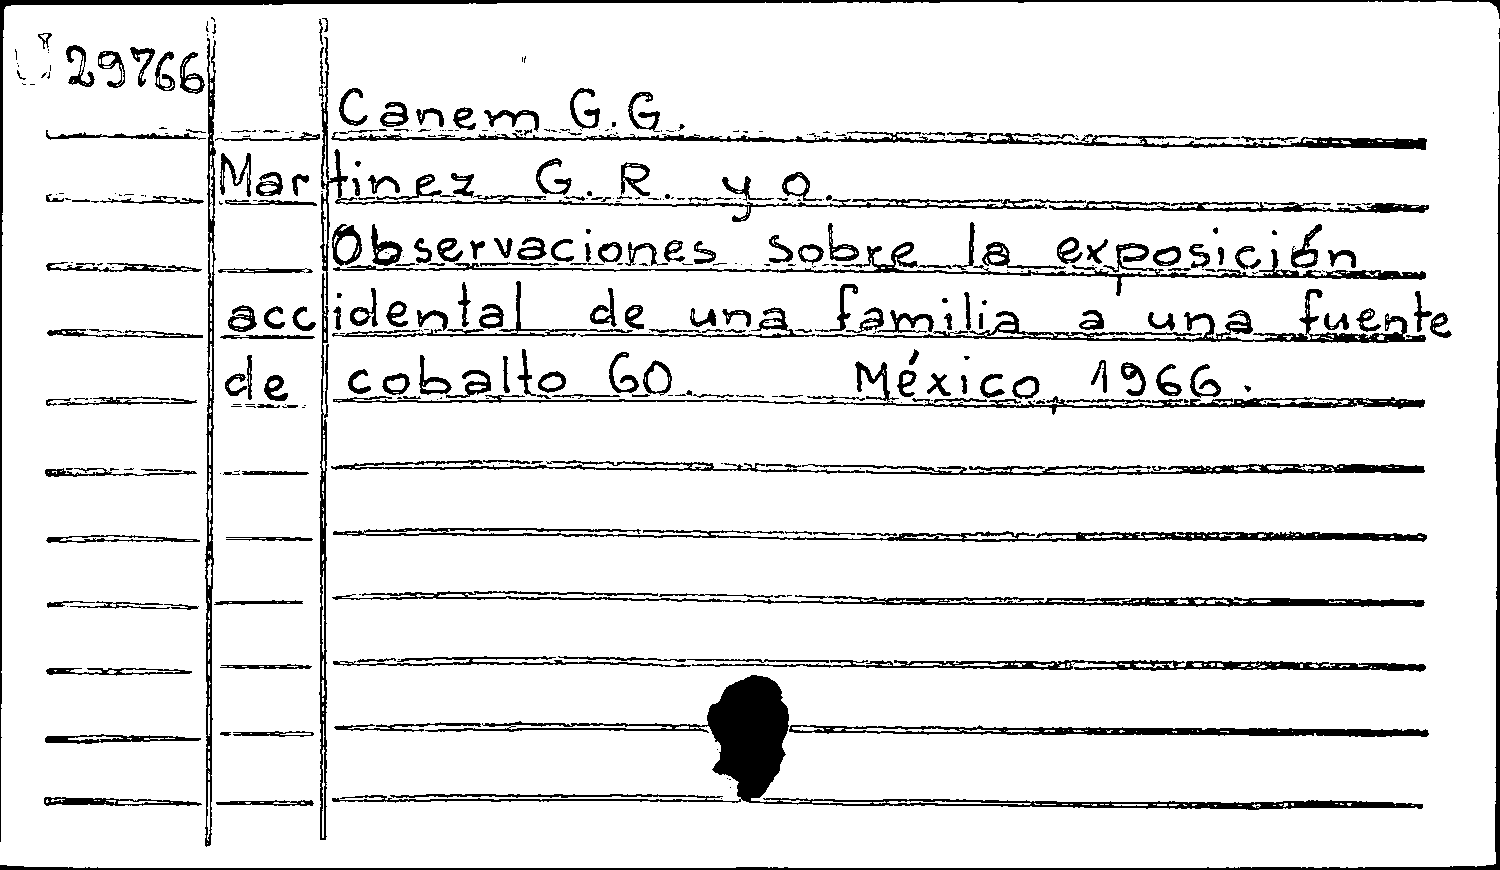 U 29766
Canem G.G.
Martinez G. R. y o.
Observaciones sobre la exposición
accidental de una familia a una fuente
de cobalto 60. México, 1966.